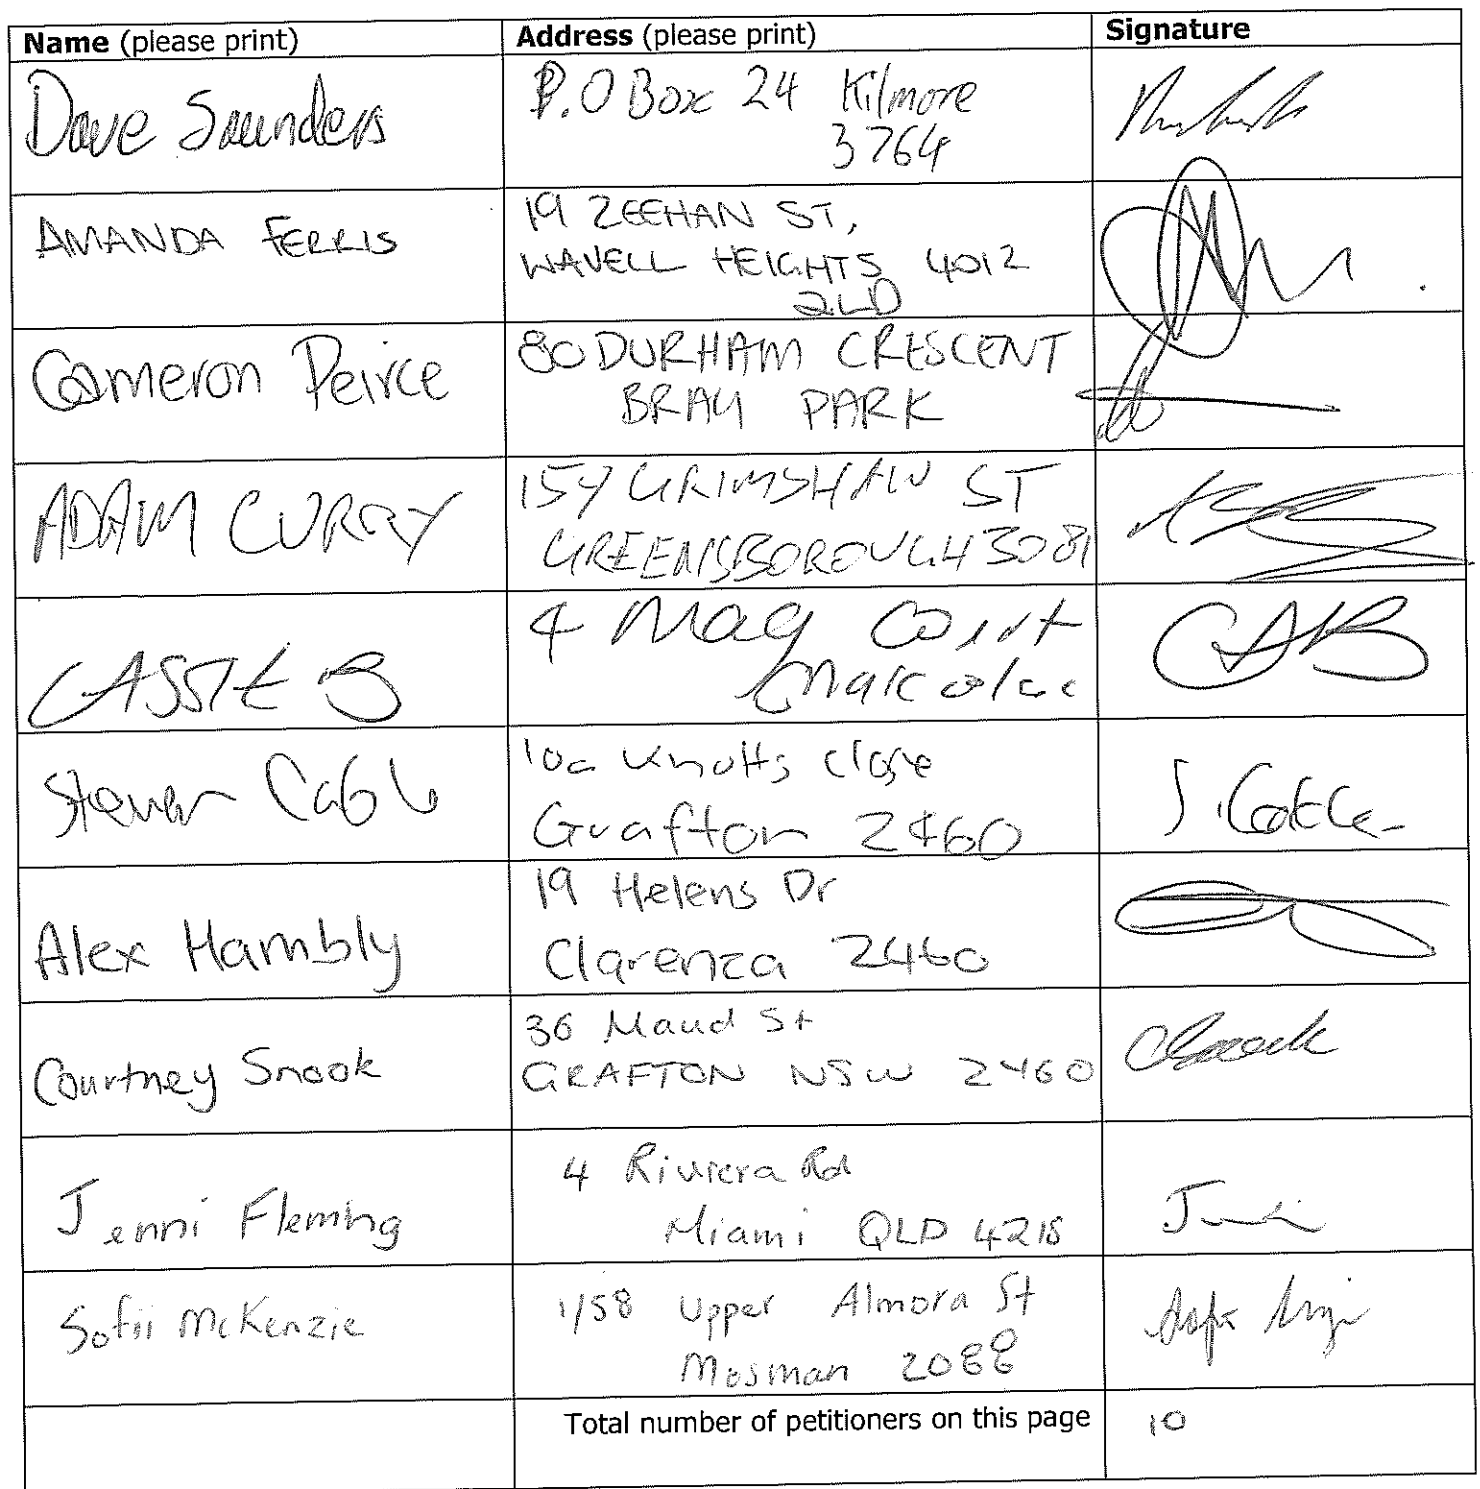 Name (please print) Address (please print) Signature
Dave Saunders
P.O Box 24 Kilmore
3764
AMANDA FERRIS
19 ZEEHAN ST,
WAVELL HEIGHTS 4012
QLD
Cameron Peirce
80 DURHAM CRESCENT
BRAY PARK
ADAM CURRY
154 GRIMSHAW ST
GREENSBOROUGH 3081
CASSIE B
4 Mag Court
CAB
Steven Cable
10a Knotts Close
Grafton 2460
Alex Hambly
19 Helens Dr
Clarenza 2460
Courtney Snook
36 Maud St
GRAFTON NSW 2460
Jenni Fleming
4 Riviera Rd
Miami QLD 4218
Sofii McKenzie
1/58 Upper Almora St
Mosman 2088
Total number of petitioners on this page 10